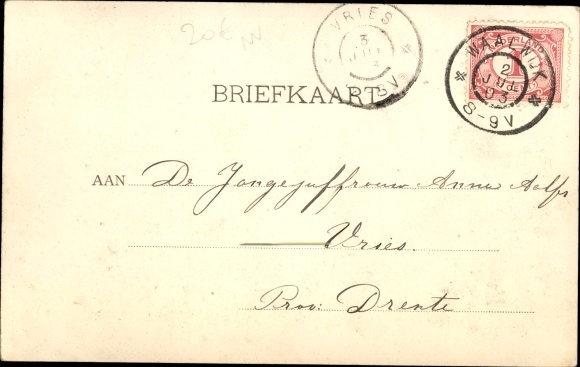 20€
VRIES
3
JUL
8V
NEDERLAND
WAALWIJK
2
JUL
03
8-9V
BRIEFKAART
AAN De Jongejuffrouw Anna Aalfs
Vries.
Prov: Drente